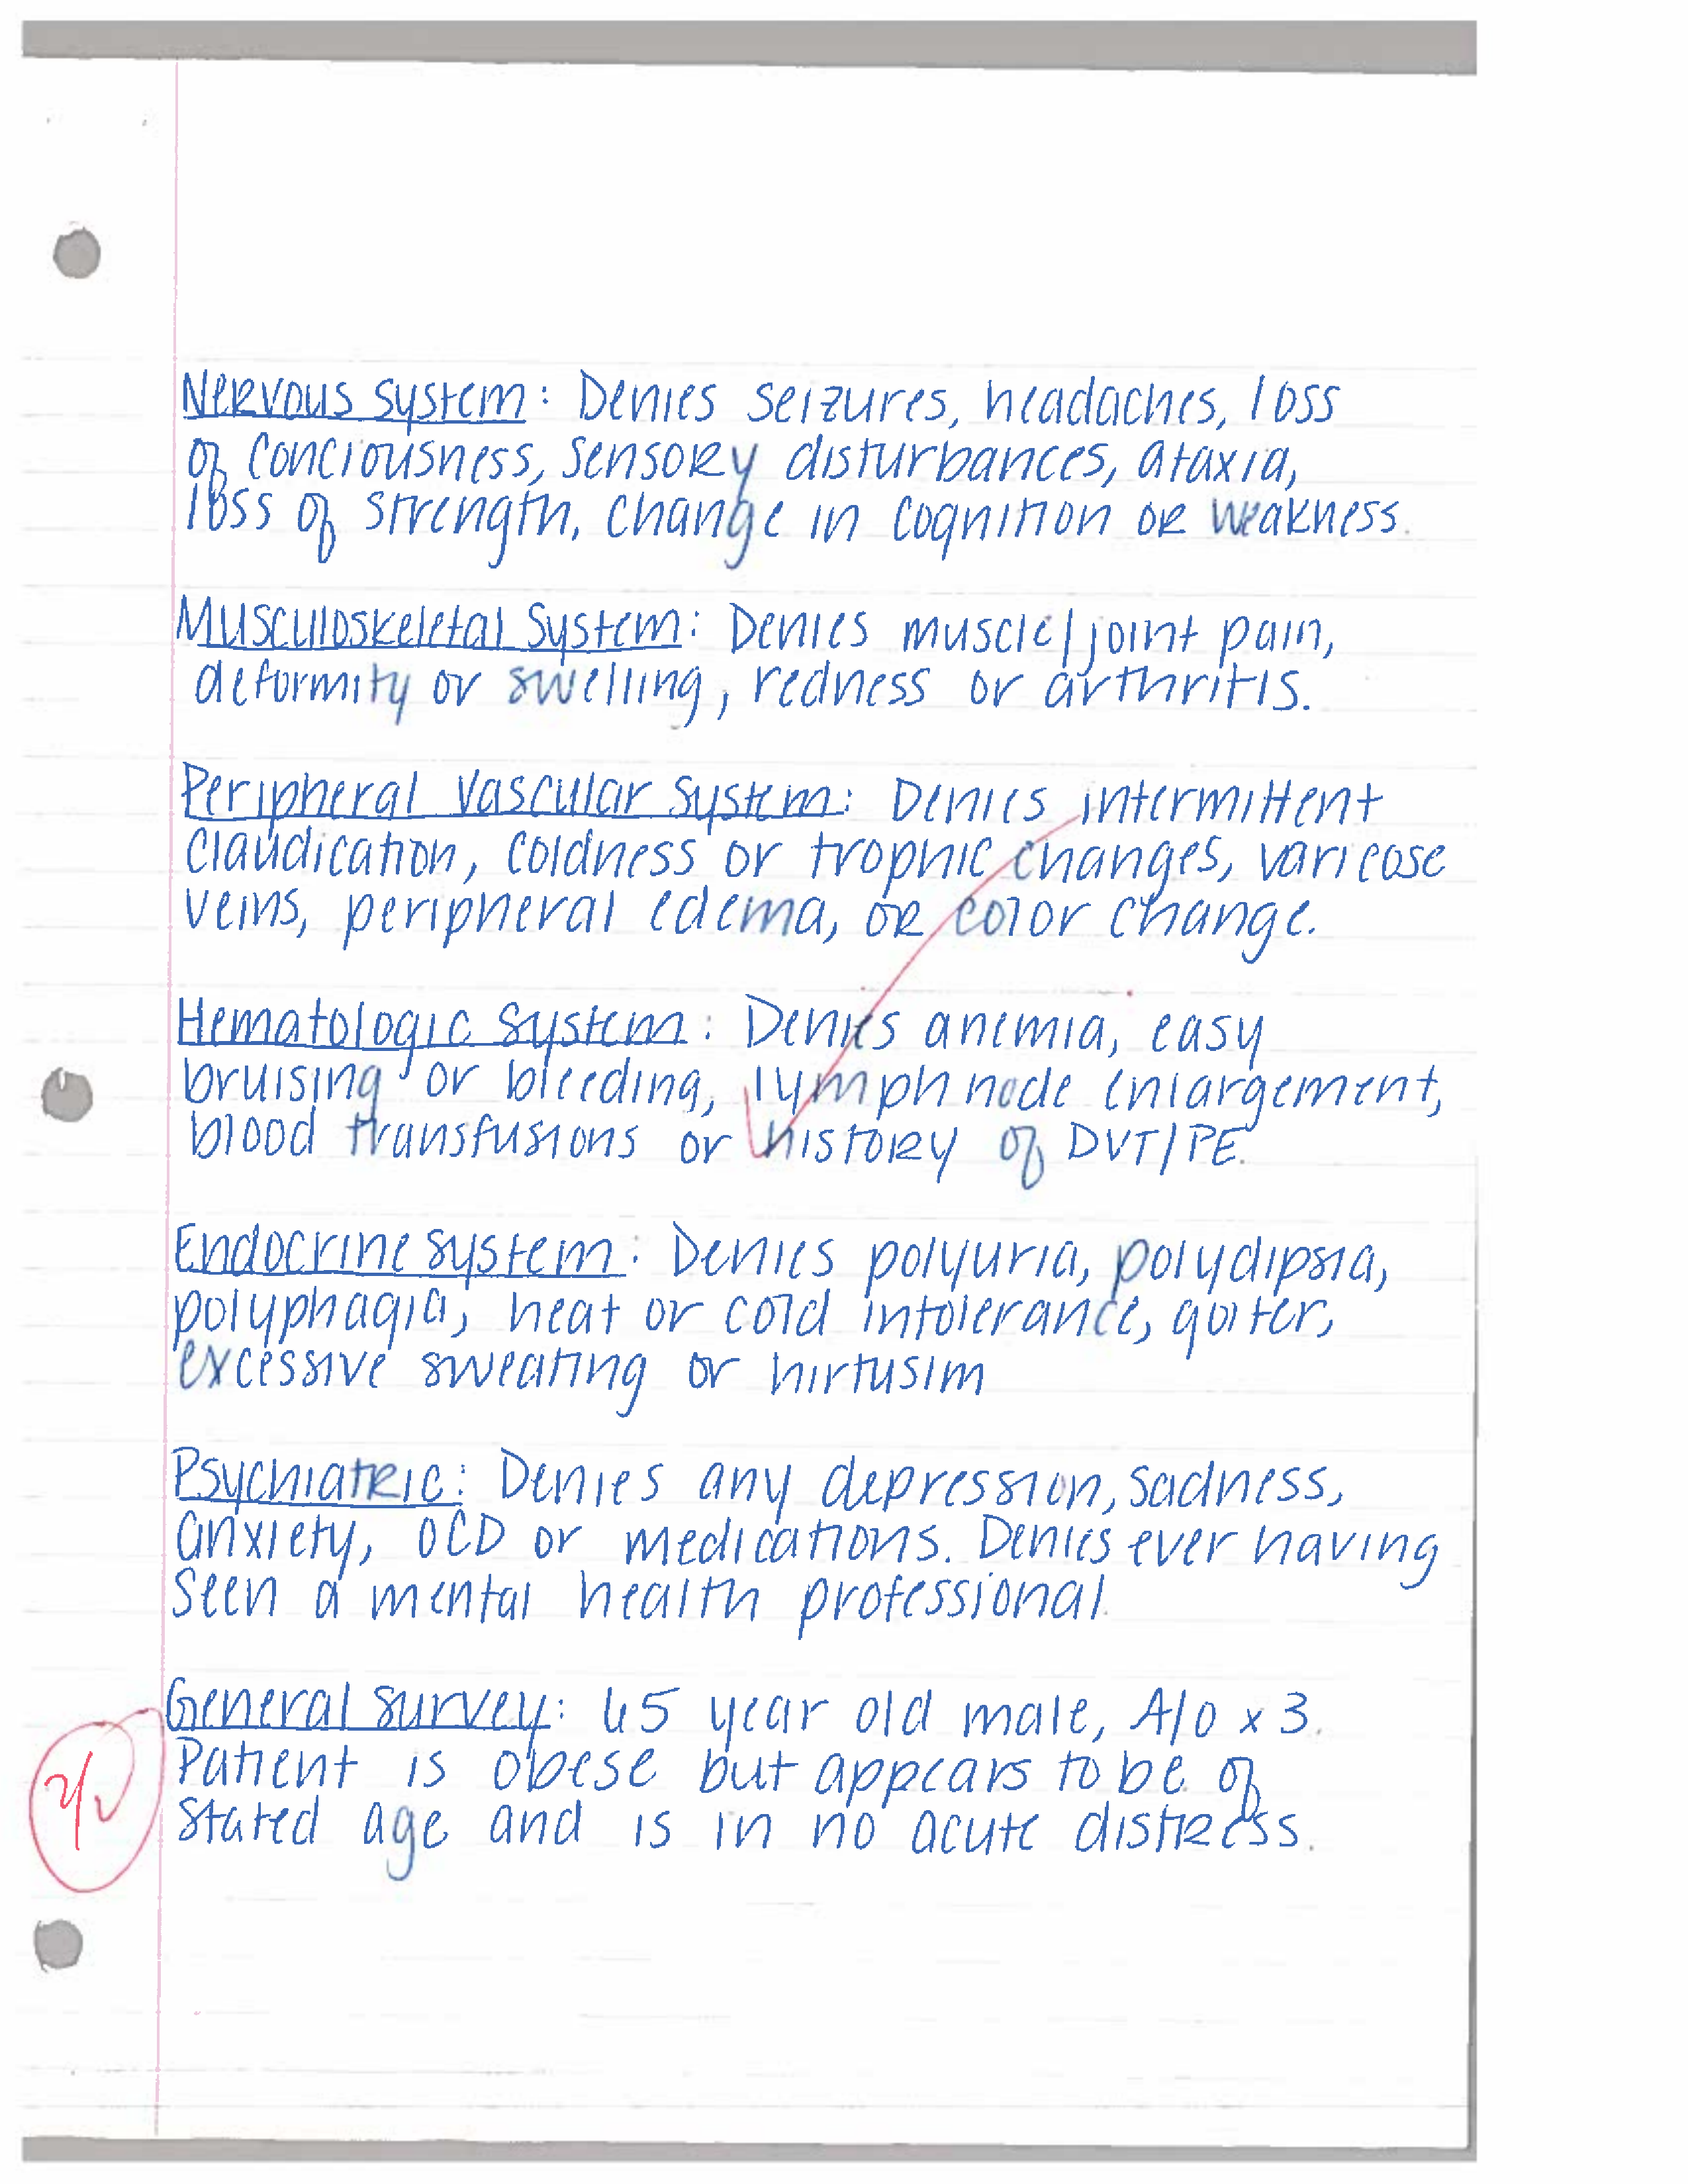 Nervous system: Denies seizures, headaches, loss
of conciousness, sensory disturbances, ataxia,
loss of strength, change in cognition or weakness.
Musculoskeletal System: Denies muscle/joint pain,
deformity or swelling, redness or arthritis.
Peripheral Vascular System: Denies intermittent
claudication, coldness or trophic changes, varicose
veins, peripheral edema, or color change.
Hematologic System: Denies anemia, easy
bruising or bleeding, lymph node enlargement,
blood transfusions or history of DVT/PE.
Endocrine System: Denies polyuria, polydipsia,
polyphagia, heat or cold intolerance, goiter,
excessive sweating or hirtusim
Psychiatric: Denies any depression, sadness,
anxiety, OCD or medications. Denies ever having
seen a mental health professional.
General Survey: 45 year old male, A/O x 3.
Patient is obese but appears to be of
stated age and is in no acute distress.